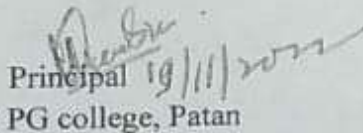 Principal 19/11/2022
PG college, Patan